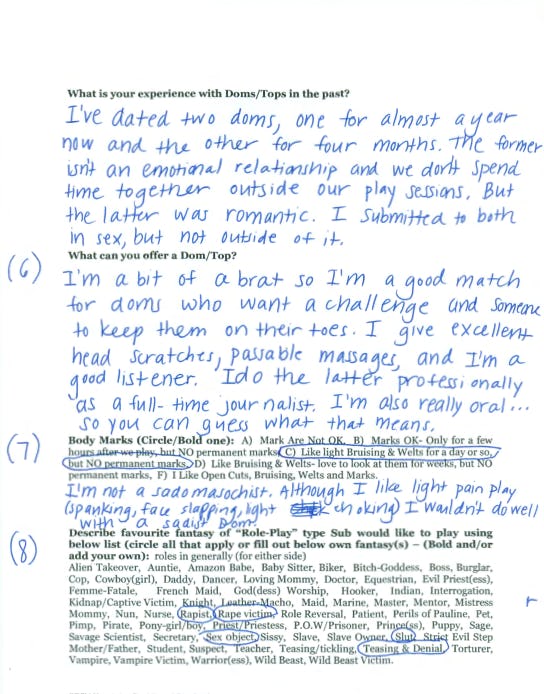 What is your experience with Doms/Tops in the past?
I've dated two doms, one for almost a year
now and the other for four months. The former
isn't an emotional relationship and we don't spend
time together outside our play sessions. But
the latter was romantic. I submitted to both
in sex, but not outside of it.
What can you offer a Dom/Top?
(6) I'm a bit of a brat so I'm a good match
for doms who want a challenge and someone
to keep them on their toes. I give excellent
head scratches, passable massages, and I'm a
good listener. I do the latter professionally
as a full-time journalist. I'm also really oral...
so you can guess what that means.
(7) Body Marks (Circle/Bold one): A) Mark Are Not OK, B) Marks OK- Only for a few
hours after we play, but NO permanent marks, C) Like light Bruising & Welts for a day or so,
but NO permanent marks, D) Like Bruising & Welts- love to look at them for weeks, but NO
permanent marks, F) I Like Open Cuts, Bruising, Welts and Marks.
I'm not a sadomasochist. Although I like light pain play
(spanking, face slapping, light choking) I wouldn't do well
with a sadist Dom.
(8) Describe favourite fantasy of "Role-Play" type Sub would like to play using
below list (circle all that apply or fill out below own fantasy(s) – (Bold and/or
add your own): roles in generally (for either side)
Alien Takeover, Auntie, Amazon Babe, Baby Sitter, Biker, Bitch-Goddess, Boss, Burglar,
Cop, Cowboy(girl), Daddy, Dancer, Loving Mommy, Doctor, Equestrian, Evil Priest(ess),
Femme-Fatale, French Maid, God(dess) Worship, Hooker, Indian, Interrogation,
Kidnap/Captive Victim, Knight, Leather-Macho, Maid, Marine, Master, Mentor, Mistress
Mommy, Nun, Nurse, Rapist, Rape victim, Role Reversal, Patient, Perils of Pauline, Pet,
Pimp, Pirate, Pony-girl/boy, Priest/Priestess, P.O.W/Prisoner, Prince(ss), Puppy, Sage,
Savage Scientist, Secretary, Sex object, Sissy, Slave, Slave Owner, Slut, Strict Evil Step
Mother/Father, Student, Suspect, Teacher, Teasing/tickling, Teasing & Denial, Torturer,
Vampire, Vampire Victim, Warrior(ess), Wild Beast, Wild Beast Victim.